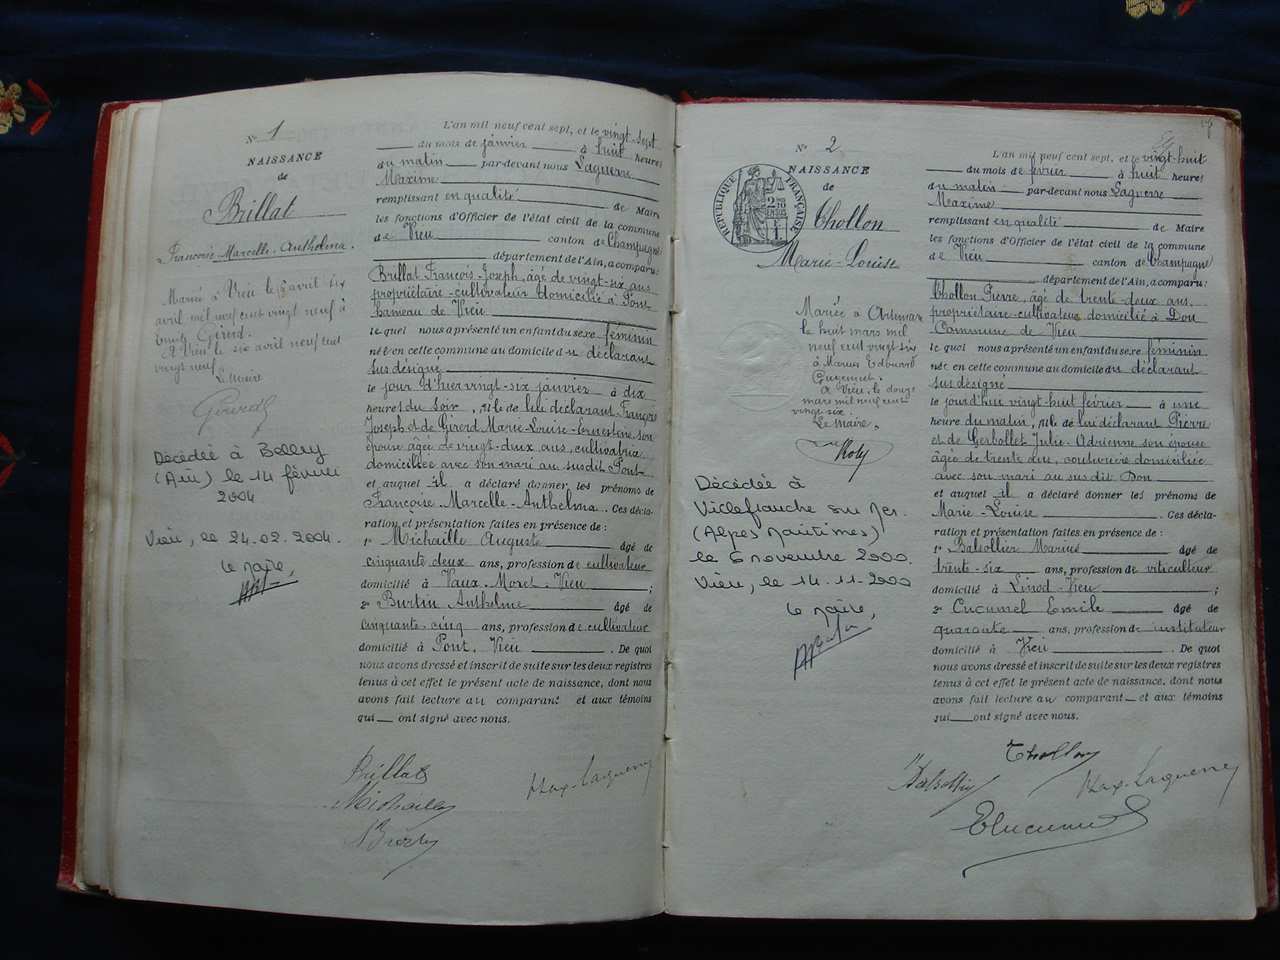 N° 1
NAISSANCE
de
Brillat
Françoise Marcelle Anthelma.
Mariée à Vieu le avril six
avril mil neuf cent vingt neuf à
Girerd.
à Vieu le six avril neuf cent
vingt neuf
Le Maire
Décédée à Belley
(Ain) le 14 février
2004
Vieu, le 24.02.2004.
Le Maire,
L'an mil neuf cent sept, et le vingt-sept
du mois de janvier à huit heures
du matin par-devant nous Laguerre
Maxime
remplissant en qualité de Maire
les fonctions d'Officier de l'état civil de la commune
de Vieu canton de Champagne
département de l'Ain, a comparu:
Brillat François-Joseph, âgé de vingt-six ans
propriétaire-cultivateur domicilié à Pont
hameau de Vieu
lequel nous a présenté un enfant du sexe féminin
né en cette commune au domicile du déclarant
sus désigné
le jour d'hier vingt-six janvier à dix
heures du soir, fille de lui déclarant François
Joseph et de Girerd Marie-Louise-Ernestine son
épouse âgée de vingt-deux ans, cultivatrice
domiciliée avec son mari au susdit Pont
et auquel il a déclaré donner les prénoms de
Françoise Marcelle-Anthelma. Ces décla-
ration et présentation faites en présence de :
1° Michaille Auguste âgé de
cinquante deux ans, profession de cultivateur
domicilié à Vaux-Moret-Vieu ;
2° Burtin Anthelme âgé de
cinquante-cinq ans, profession de cultivateur
domicilié à Pont, Vieu. De quoi
nous avons dressé et inscrit de suite sur les deux registres
tenus à cet effet le présent acte de naissance, dont nous
avons fait lecture au comparant et aux témoins
qui ont signé avec nous.
Brillat
Max-Laguerre
Michaille
N° 2
NAISSANCE
de
RÉPUBLIQUE FRANÇAISE
Thollon
Marie-Louise
Mariée à Artemare
le huit mars mil
neuf cent vingt six
à Marius Edouard
Guyennet.
à Vieu, le douze
mars mil neuf cent
vingt-six.
Le Maire,
Décédée à
Villefranche sur Mer
(Alpes Maritimes)
le 6 novembre 2000.
Vieu, le 14.11.2000
Le Maire,
L'an mil neuf cent sept, et le vingt-huit
du mois de février à huit heures
du matin par-devant nous Laguerre
Maxime
remplissant en qualité de Maire
les fonctions d'Officier de l'état civil de la commune
de Vieu canton de Champagne
département de l'Ain, a comparu:
Thollon Pierre, âgé de trente-deux ans,
propriétaire-cultivateur domicilié à Don
Commune de Vieu
lequel nous a présenté un enfant du sexe féminin
née en cette commune au domicile du déclarant
sus désigné
le jourd'hui vingt-huit février à une
heure du matin, fille de lui déclarant Pierre
et de Gerbollet Julie-Adrienne son épouse
âgée de trente un, couturière domiciliée
avec son mari au sus dit Don
et auquel il a déclaré donner les prénoms de
Marie-Louise. Ces décla-
ration et présentation faites en présence de :
1° Balsollier Marius âgé de
trente-six ans, profession de viticulteur
domicilié à Linod-Vieu ;
2° Cucumel Emile âgé de
quarante ans, profession de instituteur
domicilié à Vieu. De quoi
nous avons dressé et inscrit de suite sur les deux registres
tenus à cet effet le présent acte de naissance, dont nous
avons fait lecture au comparant et aux témoins
qui ont signé avec nous.
Thollon
Max-Laguerre
ECucumel